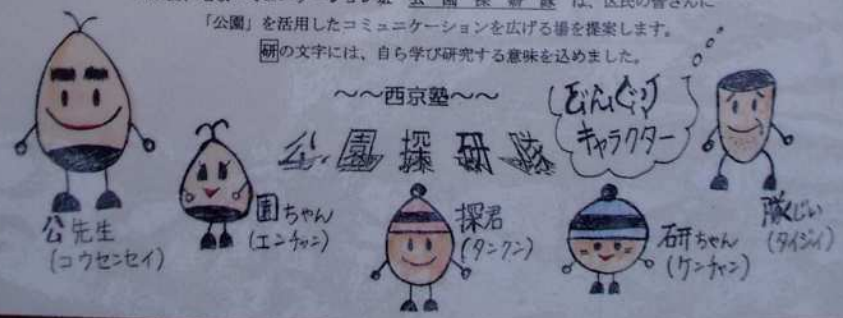 公園探研隊 は、区民の皆さんに
「公園」を活用したコミュニケーションを広げる場を提案します。
研の文字には、自ら学び研究する意味を込めました。
～～西京塾～～
どんぐり
キャラクター
公園探研隊
公先生
(コウセンセイ)
園ちゃん
(エンチャン)
探君
(タンクン)
研ちゃん
(ケンチャン)
隊じい
(タイジイ)